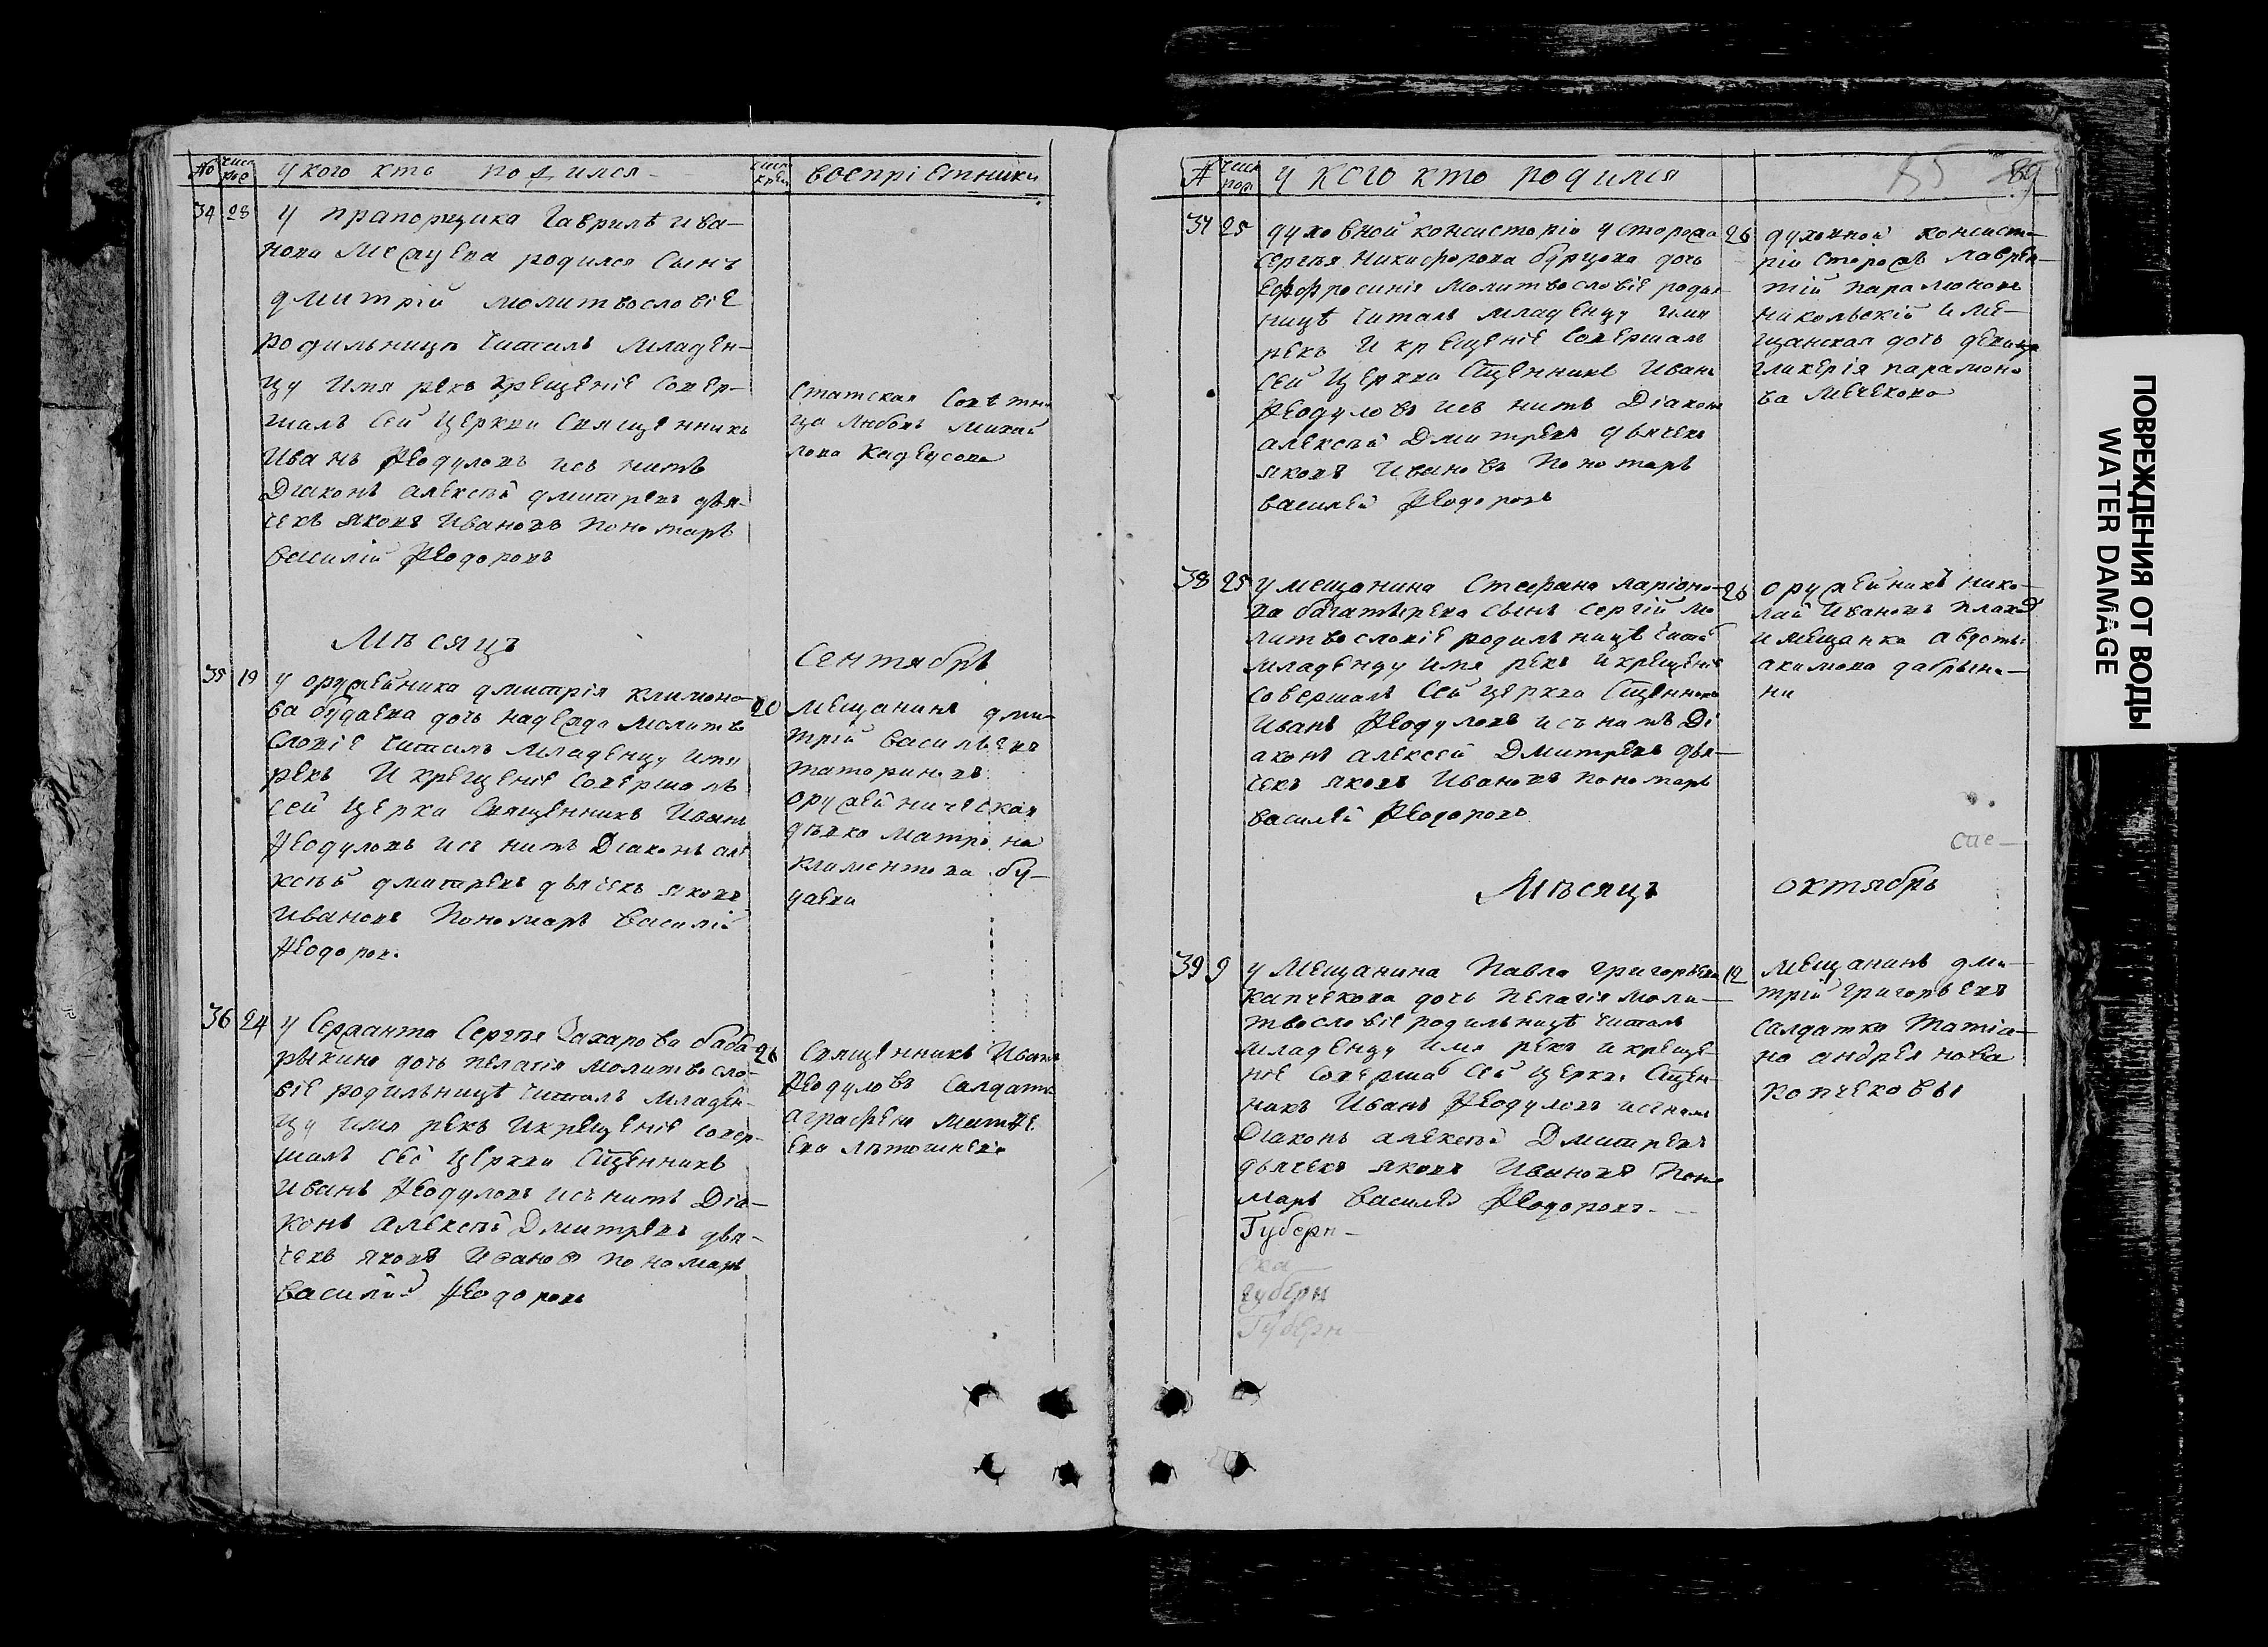 No числ рож у кого кто родился числ крещ воспріемники
34 28 у прапорщика Гаврилѣ ива-
нова родился сынъ
дмитрій молитвословіе
родильницѣ читалъ младен-
цу имя рекъ крещеніе совер-
шалъ сей церкви священникъ
иванъ Ѳеодуловъ исъ нимъ
Діаконъ алексѣй дмитревъ дья-
чекъ яковъ ивановъ пономарь
василій Ѳеодоровъ
статская совѣтни
ца любовь михай
лова
Мѣсяцъ сентябрь
35 19 у оружейника дмитрія климоно-
ва будаева дочь надежда молитво
словіе читалъ младенцу имя
рекъ и крещеніе совершалъ
сей церкви священникъ иванъ
Ѳеодуловъ исъ нимъ Діаконъ але
ксѣй дмитревъ дьячекъ яковъ
ивановъ пономарь василій
Ѳеодоров.
20 мещанинъ дми-
трій васильевъ
татариновъ
оружейническая
дѣвка матрона
климентова бу-
даева
36 24 у сержанта сергѣя захарова баба-
рыкина дочь пелагія молитвосло-
віе родильницѣ читалъ младен-
цу имя рекъ и крещеніе совер-
шалъ сей церкви сщенникъ
иванъ Ѳеодуловъ исъ нимъ Діа-
конъ алексѣй Дмитревъ дья-
чекъ яковъ иванов пономарь
василий Ѳеодоровъ
26 священникъ иванъ
Ѳеодуловъ салдатк
аграфена матѲе
ева
№ числ рож у кого кто родился 85 89
37 25 духовной консисторіи у сторожа
сергѣя никифорова бурцова дочь
ефросинія молитвословіе роди
ницѣ читалъ младенцу имя
рекъ и крещеніе совершалъ
сей церкви сщенникъ иванъ
Ѳеодуловъ исъ нимъ Діаконъ
алексѣй Дмитревъ дьячекъ
яковъ ивановъ пономарь
василей Ѳеодоровъ
26 духовной консисто
ріи сторожъ лаврен
тій парамоновъ
никольскій и ме-
щанская дочь девица
гликерія парамоно
ва
38 25 у мещанина стефана ларіоно-
ва сынъ сергій мо
литвословіе родильницѣ читал
младенцу имя рекъ и крещеніе
совершалъ сей церкви сщенникъ
иванъ Ѳеодуловъ исъ нимъ Ді
аконъ алексей Дмитревъ дья-
чекъ яковъ ивановъ пономарь
василей Ѳеодоровъ
26 оружейникъ нико-
лай ивановъ
и мещанка авдотья
акимова
ни
спе-
Мѣсяцъ октябрь
39 9 у мещанина Павла григорьева
капчекова дочь пелагія моли-
твословіе родильницѣ читалъ
младенцу имя рекъ и креще-
ніе совершал сей церкви сщен-
никъ иванъ Ѳеодуловъ исъ нимъ
Діаконъ алексѣй Дмитревъ
дьячекъ яковъ ивановъ поно
марь василей Ѳеодоровъ-
Губерн-
ска
губерн
Губерн
12 мещанинъ дми-
трій григорьевъ
салдатка татіа-
на андреянова
копчековы
ПОВРЕЖДЕНИЯ ОТ ВОДЫ
WATER DAMAGE